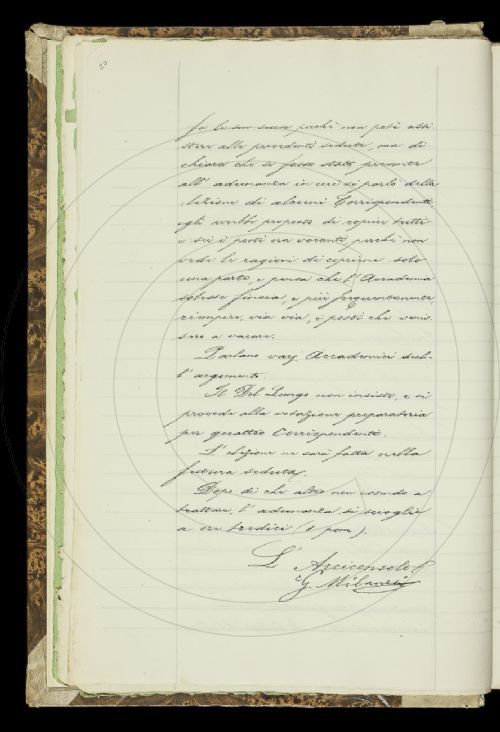 20
fa le sue scuse perchè non potè assi
stere alla precedente seduta, ma di
chiara che se fosse stato presente
all' adunanza in cui si parlò della
elezione di alcuni Corrispondenti
egli avrebbe proposto di coprire tutti
e sei i posti ora vacanti, perchè non
vede le ragioni di coprirne solo
una parte, e pensa che l'Accademia
solesse finora, e più frequentemente
riempire, via via, i posti che venis
sero a vacare.
Parlano varj Accademici sul
l' argomento.
Il Del Lungo non insiste, e si
procede alla votazione preparatoria
per quattro Corrispondenti.
L' elezione ne sarà fatta nella
futura seduta.
Dopo di che altro non essendo a
trattare, l' adunanza si scioglie
a ore tredici (1 pom.).
L' Arciconsolo
G. Milanesi